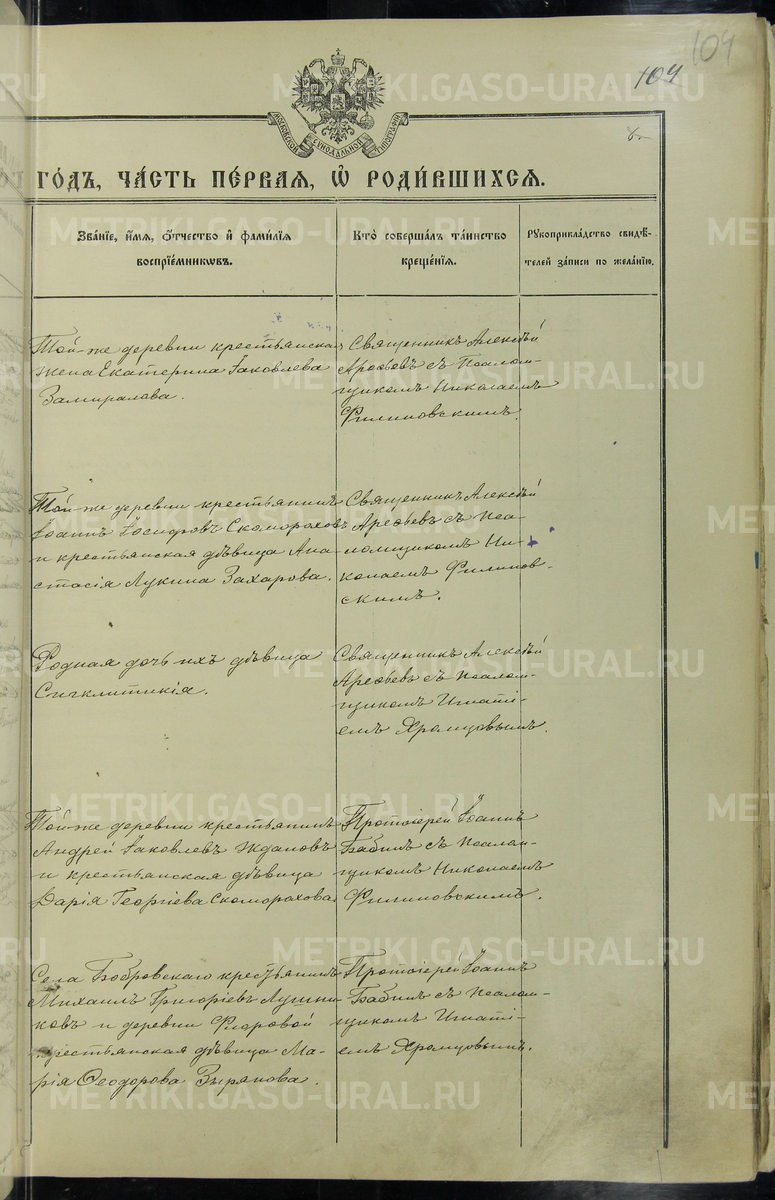 104
104
МОСКОВСКОЙ СѴНОДАЛЬНОЙ ТИПОГРАФІИ
ГОДЪ, ЧАСТЬ ПЕРВАЯ, Ѡ РОДИВШИХСЯ.
Званіе, имя, отчество и фамилія
воспріемниковъ.
Кто совершалъ таинство
крещенія.
Рукоприкладство свидѣ-
телей записи по желанію.
Той-же деревни крестьянская
жена Екатерина Іаковлева
Замиралова.
Священникъ Алексѣй
Арефьевъ съ псалом-
щикомъ Николаемъ
Филиповскимъ.
Той-же деревни крестьянинъ
Іоаннъ Іосифовъ Скомороховъ
и крестьянская дѣвица Ана-
стасія Лукина Захарова.
Священникъ Алексѣй
Арефьевъ съ пса-
ломщикомъ Ни-
колаемъ Филипов-
скимъ.
Родная дочь ихъ дѣвица
Сигклитикія.
Священникъ Алексѣй
Арефьевъ съ псалом-
щикомъ Игнаті-
емъ Хромцовымъ.
Той-же деревни крестьянинъ
Андрей Іаковлевъ Ждановъ
и крестьянская дѣвица
Дарія Георгіева Скоморохова.
Протоіерей Іоаннъ
Бабинъ съ псалом-
щикомъ Николаемъ
Филиповскимъ.
Села Бобровскаго крестьянинъ
Михаилъ Григоріевъ Лушни-
ковъ и деревни
крестьянская дѣвица Ма-
рія Ѳеодорова Зырянова.
Протоіерей Іоаннъ
Бабинъ съ псалом-
щикомъ Игнаті-
емъ Хромцовымъ.
METRIKI.GASO-URAL.RU